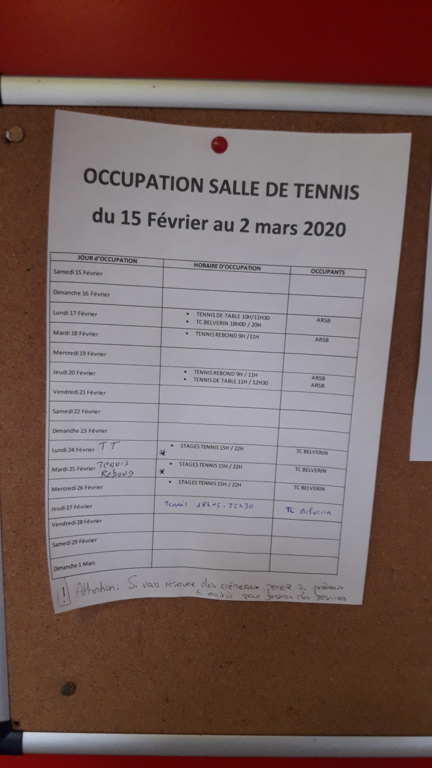 OCCUPATION SALLE DE TENNIS
du 15 Février au 2 mars 2020
JOUR d'OCCUPATION HORAIRE D'OCCUPATION OCCUPANTS
Samedi 15 Février
Dimanche 16 Février
Lundi 17 Février • TENNIS DE TABLE 10H/11H30 ARSB
• TC BELVERIN 18H00 / 20H
Mardi 18 Février • TENNIS REBOND 9H /11H ARSB
Mercredi 19 Février
Jeudi 20 Février • TENNIS REBOND 9H / 11H ARSB
• TENNIS DE TABLE 11H / 12H30 ARSB
Vendredi 21 Février
Samedi 22 Février
Dimanche 23 Février
Lundi 24 Février TT * • STAGES TENNIS 15H / 22H TC BELVERIN
Mardi 25 Février TENNIS REBOND * • STAGES TENNIS 15H / 22H TC BELVERIN
Mercredi 26 Février • STAGES TENNIS 15H / 22H TC BELVERIN
Jeudi 27 Février Tennis TC Belverin
Vendredi 28 Février
Samedi 29 Février
Dimanche 1 Mars
! Attention, Si vous réservez des créneaux, pensez à prévenir